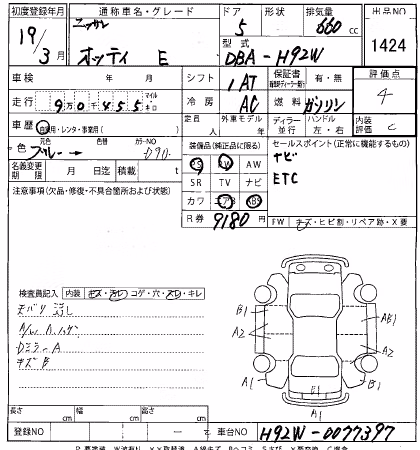 初度登録年月 通称車名・グレード ドア 形状 排気量 出品NO
19/3月 ニッサン オッティ E 5 660cc 1424
型式 DBA-H92W
車検 年 月 シフト 1AT 保証書 有・無 評価点 4
走行 9万0千455 マイル キロ 冷房 AC 燃料 ガソリン
車歴 自家用・レンタ・事業用( ) 定員 人 外車モデル 年 ディーラー 並行 ハンドル 左・右 内装評価 C
色 元色 ブルー→ 色替 カラーNO
装備品(純正品に限る) セールスポイント(正常に機能するもの)
名義変更期限 月 日迄 積載 t
PS PW AW ナビ
SR TV ナビ ETC
注意事項(欠品・修復・不具合箇所および状態)
カワ エアB ABS
R券 9180円
FW キズ・ヒビ割・リペア跡・X要
検査員記入 内装 キズ・汚レ・コゲ・穴・スレ・キレ
A
Dミラー A
キズ B
B1 A2 A2 AB1 A2 A1 B1 E1 A1
長さ cm 幅 cm 高さ cm
登録NO ー 車台NO H92W-0077397